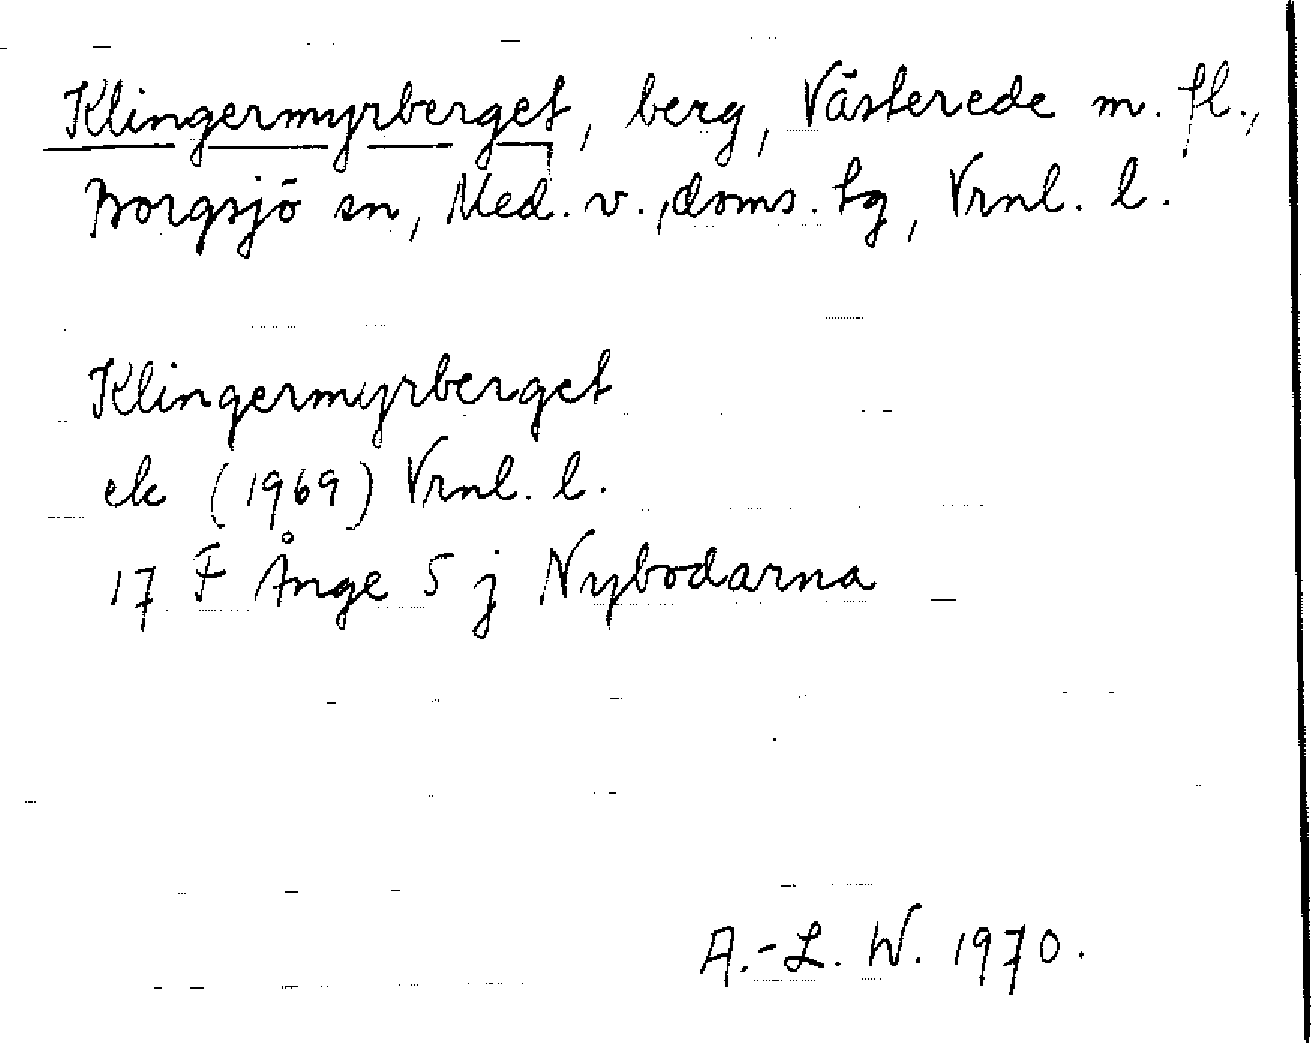 Klingermyrberget, berg, Västerede m. fl.,
Borgsjö sn, Med. v., doms. tg, Vrnl. l.
Klingermyrberget
ek (1969) Vrnl. l.
17 F Ånge 5 j Nybodarna
A.-L. W. 1970.